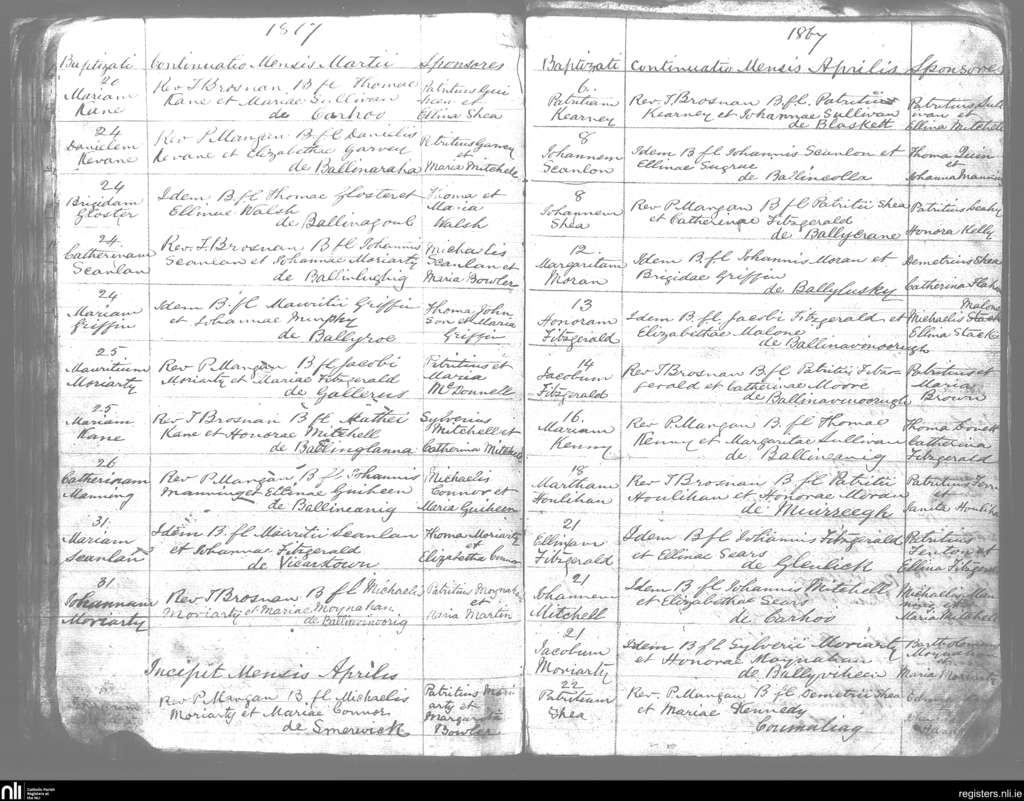 1867
Baptizati Continuatio Mensis Martii Sponsores
20 Mariam Kane
Rev T Brosnan B fl Thomae
Kane et Mariae Sullivan
de Carhoo
Patritius Gui
heen et
Ellina Shea
24 Danielem Kevane
Rev P Mangan B fl Danielis
Kevane et Elizabethae Garvey
de Ballinaraha
Patritius Garvey
et
Maria Mitchele
24 Brigidam Gloster
Idem B. fl Thomae Gloster et
Ellinae Walsh
de Ballinagoul
Thoma et
Maria
Walsh
24. Catherinam Scanlan
Rev. T. Brosnan B fl Iohannis
Scanlan et Iohannae Moriarty
de Ballinlughig
Michaelis
Scanlan et
Maria Bowler
24 Mariam Griffin
Idem B. fl Mauritii Griffin
et Iohannae Murphy
de Ballyroe
Thoma John
son et Maria
Griffin
25 Mauritium Moriarty
Rev P Mangan B fl Jacobi
Moriarty et Mariae Fitzgerald
de Gallerus
Patritius et
Maria
McDonnell
25 Mariam Kane
Rev T Brosnan B fl Mathei
Kane et Honorae Mitchell
de Ballinglanna
Sylverius
Mitchell et
Catherina Mitchele
26 Catherinam Manning
Rev P Mangan B fl Iohannis
Manning et Ellinae Guiheen
de Ballineanig
Michaelis
Connor et
Maria Guiheen
31. Mariam Scanlan
Idem B. fl Mauritii Scanlan
et Iohannae Fitzgerald
de Vicarstown
Thoma Moriarty
et
Elizabetha Connor
31. Iohannam Moriarty
Rev T Brosnan B fl Michaelis
Moriarty et Mariae Moynahan
de Ballinvinoorig
Patritius Moynahan
et
Maria Martin
Incipit Mensis Aprilis
Rev P. Mangan B fl Michaelis
Moriarty et Mariae Connor
de Smerwick
Patritius Mori
arty et
Margarita
Bowler
1867
Baptizati Continuatio Mensis Aprilis Sponsores
6. Patritiam Kearney
Rev. T. Brosnan B fl. Patritius
Kearney et Iohannae Sullivan
de Blaskett
Patritius Sulli
van et
Ellina Mitchele
8 Iohannem Scanlon
Idem B fl Iohannis Scanlon et
Ellinae Sugrue
de Ballincolla
Thoma Quin
et
Iohanna Manning
8 Iohannem Shea
Rev P. Mangan B fl Patritii Shea
et Catherinae Fitzgerald
de Ballycrane
Patritius Leahy
Honora Kelly
12. Margaritam Moran
Idem B. fl Iohannis Moran et
Brigidae Griffin
de Ballylusky
Demetrius Shea
Catherina
13 Honoram Fitzgerald
Idem B. fl Jacobi Fitzgerald et
Elizabethae Malone
de Ballinavinoorugh
Malone
Michaelis Stack
Ellina Stack
14 Jacobum Fitzgerald
Rev T Brosnan B fl Patritii Fitz-
gerald et Catherinae Moore
de Ballinavinoorugh
Patritius et
Maria
Brown
16. Mariam Kenny
Rev P. Mangan B. fl Thomae
Kenny et Margaritae Sullivan
de Ballineanig
Thoma
Catherina
Fitzgerald
18 Martham Houlihan
Rev T Brosnan B fl Patritii
Houlihan et Honorae Moran
de Muirreegh
Patritius
et
Houlihan
21 Ellinam Fitzgerald
Idem B fl Iohannis Fitzgerald
et Ellinae Sears
de Glenlick
Patritius
Fenton et
Ellina Fitzger
21 Iohannem Mitchell
Idem B fl Iohannis Mitchell
et Elizabethae Sears
de Carhoo
Michaelis Man
et
Maria Mitchele
21 Jacobum Moriarty
Idem B fl Sylverii Moriarty
et Honorae Moynahan
de Ballyviheen
Bartholom
Maria Moriarty
22 Patritiam Shea
Rev. P. Mangan B fl Demetrii Shea
et Mariae Kennedy
Coumaling
nli Catholic Parish
Registers at
the NLI
registers.nli.ie